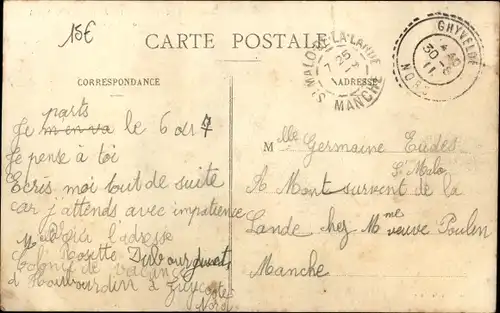 15€
CARTE POSTALE
CORRESPONDANCE
ADRESSE
ST MALO-DE-LA-LANDE
MANCHE
GHYVELDE
NORD
parts
Je m'en va le 6 ou 7
Je pense à toi
Ecris moi tout de suite
car j'attends avec impatience
l'adresse
Rosette
Colonie de vacance
d'Haubourdin à
Nord
Mlle Germaine Eudes
St Malo
A Mont survent de la
Lande chez Mme veuve Poulen
Manche